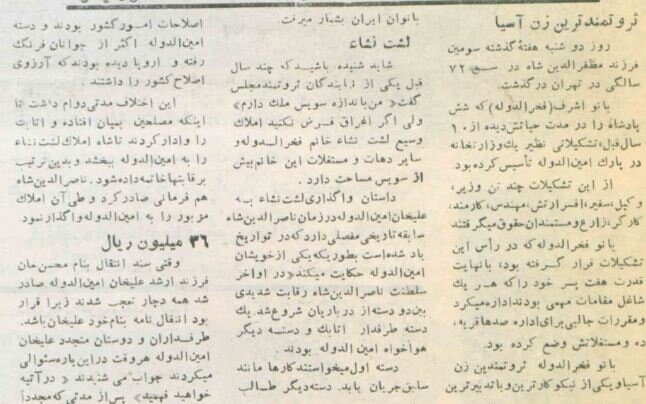 ثروتمندترین زن آسیا
روز دو شنبه هفتهٔ گذشته سومین
فرزند مظفرالدین شاه در سن ۷۲
سالگی در تهران درگذشت.
بانو اشرف (فخرالدوله) که شش
پادشاه را در مدت حیاتش دیده از ۶۰
سال قبل، تشکیلاتی نظیر یك وزارتخانه
در پارك امین الدوله تأسیس کرده بود.
از این تشکیلات چند تن وزیر،
وکیل، سفیر، افسر ارتش، مهندس، کارمند،
کارگر، زارع ومستمندان حقوق میگرفتند
بانو فخرالدوله که در رأس این
تشکیلات قرار گرفته بود، بانهایت
قدرت هفت پسر خود را که هر یك
شاغل مقامات مهمی بودند اداره میکرد
و مقررات جالبی برای اداره صدها قریه،
ده ومستغلاتش وضع کرده بود.
بانو فخرالدوله ثروتمندین زن
آسیا ویکی از نیکوکارترین وبا تدبیرترین
بانوان ایران بشمار میرفت
لشت نشاء
شاید شنیده باشید که چند سال
قبل یکی از نمایندگان ثروتمند مجلس
گفت «من باندازه سویس ملك دارم»
ولی اگر اغراق فرض نکنید املاك
وسیع لشت نشاء خانم فخرالدوله و
سایر دهات و مستغلات این خانم بیش
از سویس مساحت دارد.
داستان واگذاری لشت نشاء به
علیخان امین الدوله در زمان ناصرالدین شاه
سابقه تاریخی مفصلی دارد که در تواریخ
یاد شده است بطوریکه یکی از خویشان
امین الدوله حکایت میکند «در اواخر
سلطنت ناصرالدین شاه رقابت شدیدی
بین دو دسته از درباریان شروع شد. یك
دسته طرفدار اتابك و دسته دیگر
هواخواه امین الدوله بودند.
دسته اول میخواستند کارها مانند
سابق جریان یابد. دسته دیگر طالب
اصلاحات امور کشور بودند و دسته
امین الدوله اکثر از جوانان فرنگ
رفته و اروپا دیده بودند که آرزوی
اصلاح کشور را داشتند.
این اختلاف مدتی دوام داشت تا
اینکه مصلحین بمیان افتاده و اتابك
را وادار کردند تا شاه املاك لشت نشاء
را به امین الدوله ببخشد و بدین ترتیب
برقابتها خاتمه داده شود. ناصرالدین شاه
هم فرمانی صادر کرد و طی آن املاك
مزبور را به امین الدوله واگذار نمود.
۳۶ میلیون ریال
وقتی سند انتقال بنام محسن خان
فرزند ارشد علیخان امین الدوله صادر
شد همه دچار تعجب شدند زیرا قرار
بود انتقال نامه بنام خود علیخان باشد.
طرفداران و دوستان متجدد علیخان
امین الدوله هروقت در این باره سئوالی
میکردند جواب می شنیدند «در آتیه
خواهید فهمید» پس از مدتی که مجدداً